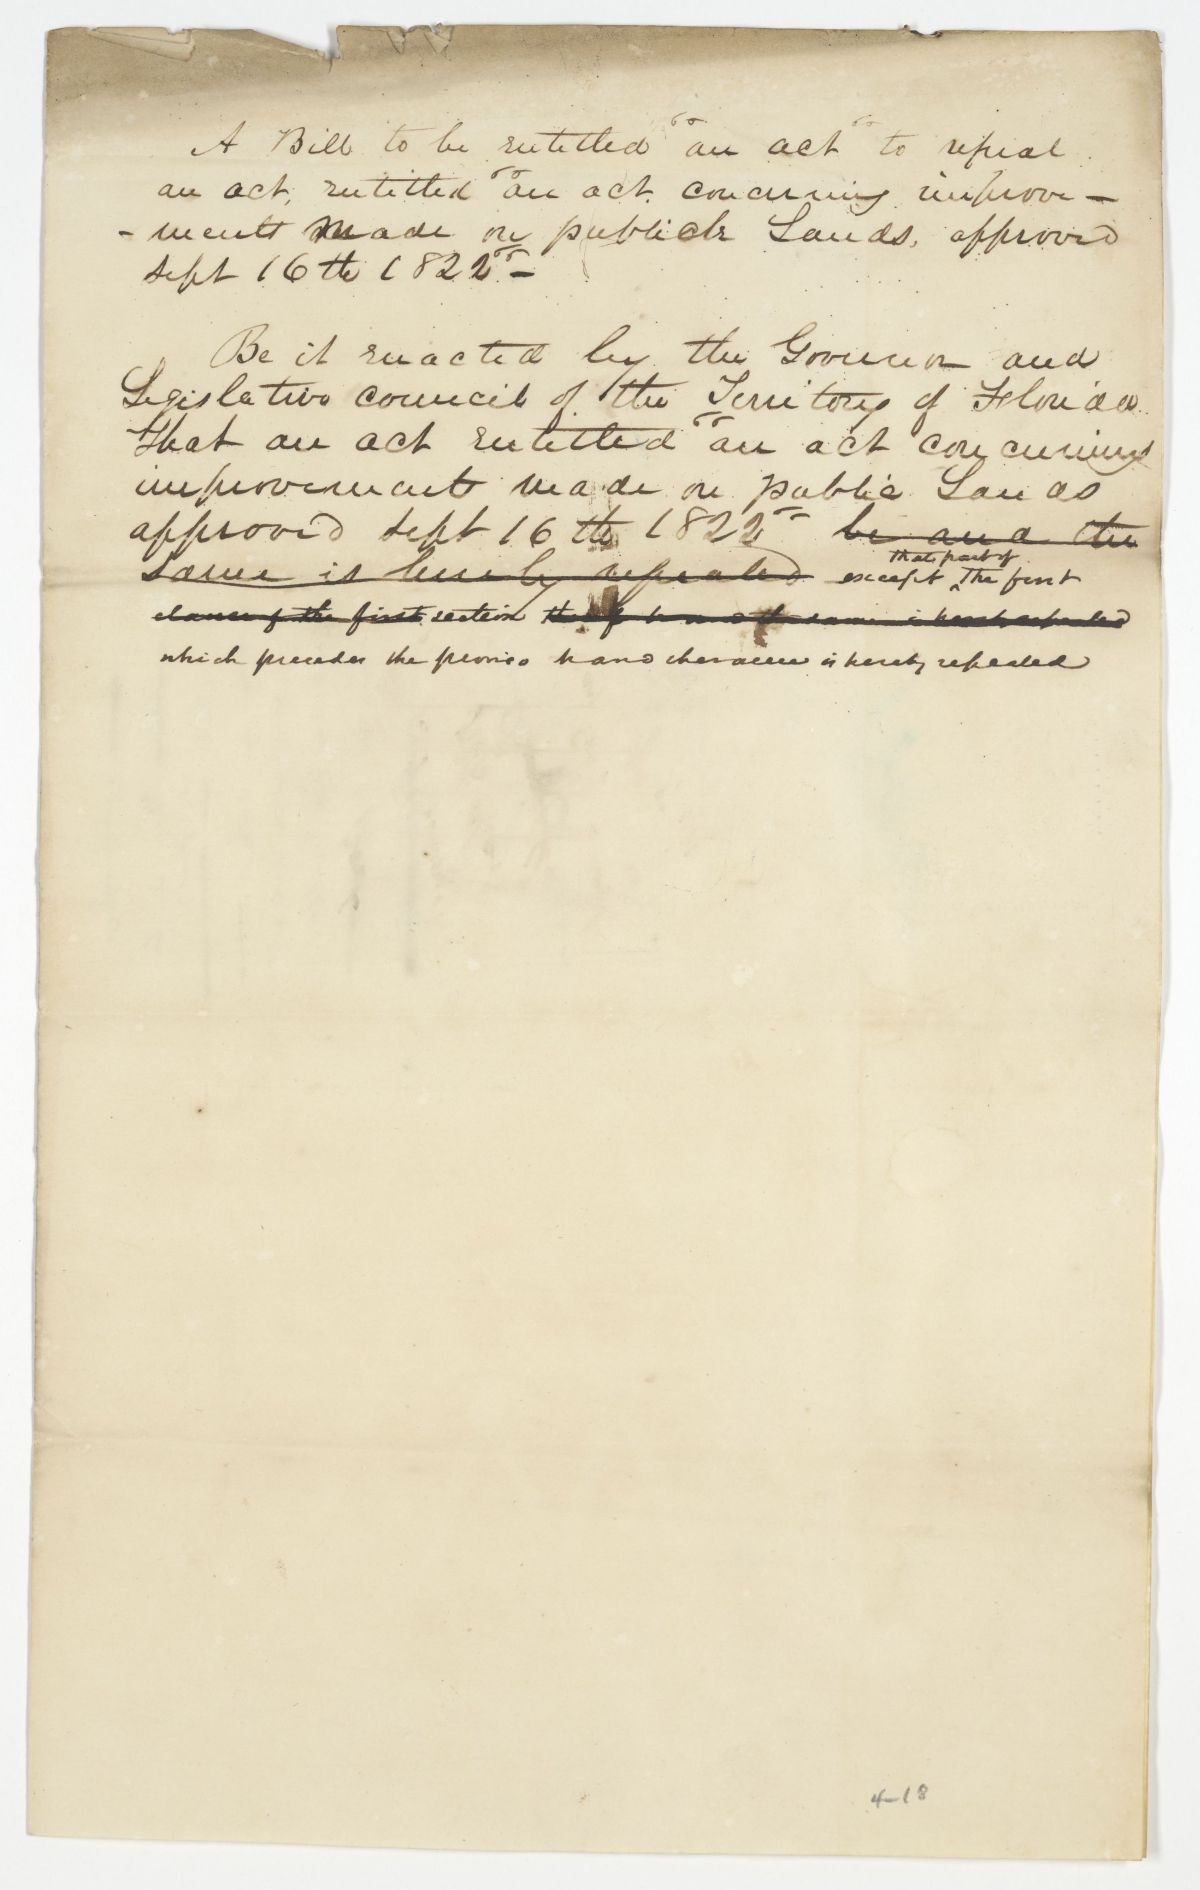 A Bill to be entitled "an act" to repeal
an act, entitled "an act concerning improve-
-ments made on publick Lands, approved
Sept 16th 1822"-
Be it enacted by the Governor and
Legislative council of the Territory of Florida
That an act entitled "an act concerning
improvements made on public Lands
approved Sept 16th 1822" be and the
same is hereby repealed except that part of The first
clause of the first section thereof be and the same is hereby repealed
which precedes the proviso be and the same is hereby repealed
4-18